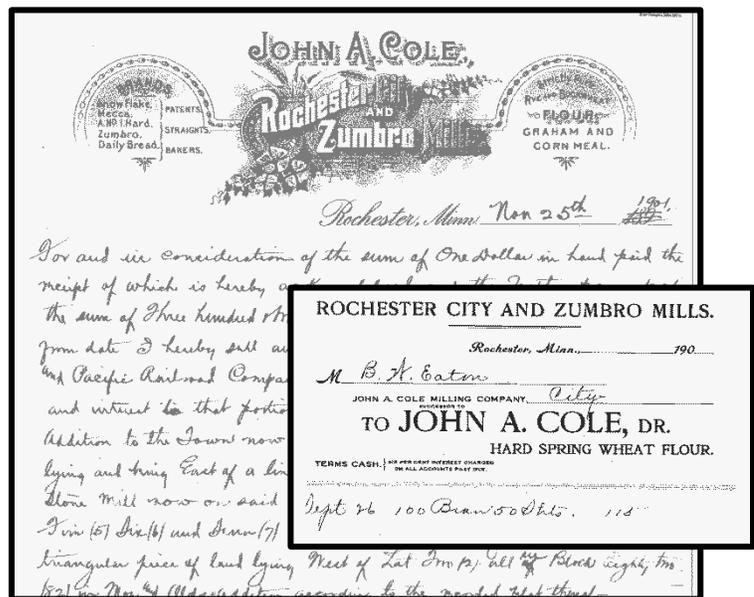 JOHN A. COLE,
Rochester City
AND
Zumbro Mills
BRANDS
Snow Flake,
Mecca,
A.No 1 Hard,
Zumbro,
Daily Bread.
PATENTS.
STRAIGHTS.
BAKERS.
STRICTLY PURE
RYE AND BUCKWHEAT
FLOUR,
GRAHAM AND
CORN MEAL.
Rochester, Minn. Nov 25th 1901.
For and in consideration of the sum of One Dollar in hand paid the
receipt of which is hereby
the sum of Three hundred
from date I hereby sell
and Pacific Railroad
and interest to that
Addition to the Town now
lying and being East of a
Stone Mill now on said
Five (5) Six (6) and Seven (7)
triangular piece of land lying West of Lot Two (2), all in Block Eighty two
(82) in according to the recorded plat thereof
ROCHESTER CITY AND ZUMBRO MILLS.
Rochester, Minn., 190
M B. W. Eaton
City
JOHN A. COLE MILLING COMPANY,
SUCCESSOR TO
TO JOHN A. COLE, DR.
HARD SPRING WHEAT FLOUR.
TERMS CASH. SIX PER CENT INTEREST CHARGED
ON ALL ACCOUNTS PAST DUE.
Sept 26 100 Bran 50 Shts. 115